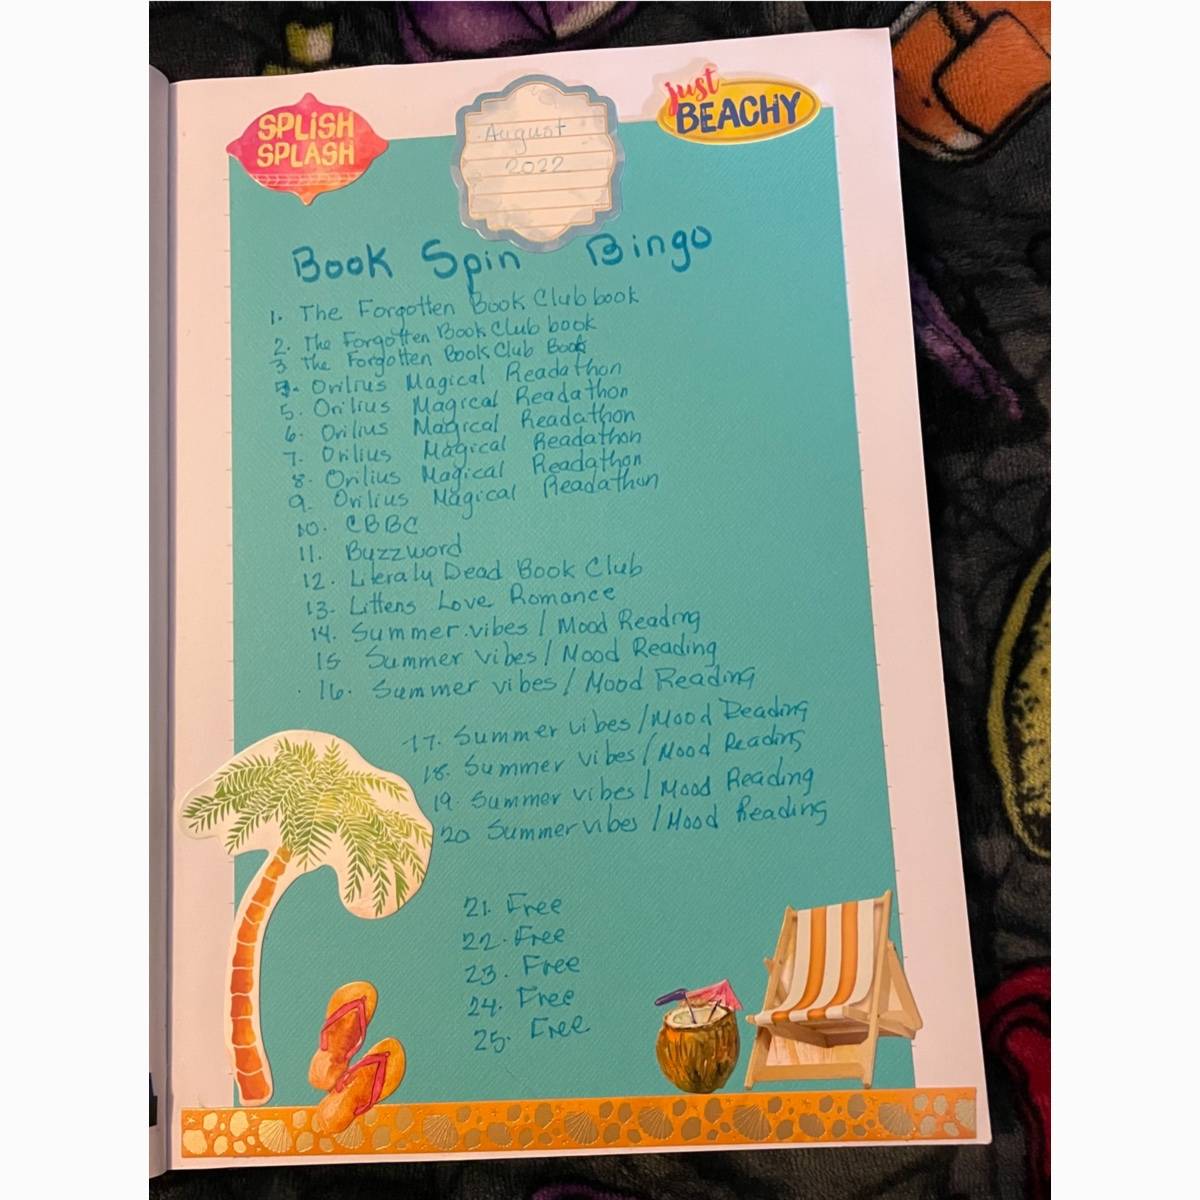 SPLISH
SPLASH
August
2022
just
BEACHY
Book Spin Bingo
1. The Forgotten Book Club book
2. The Forgotten Book Club book
3 The Forgotten Book Club Book
4. Orilius Magical Readathon
5. Orilius Magical Readathon
6. Orilius Magical Readathon
7. Orilius Magical Readathon
8. Orilius Magical Readathon
9. Orilius Magical Readathon
10. CBBC
11. Buzzword
12. Literaly Dead Book Club
13. Littens Love Romance
14. Summer vibes / Mood Reading
15 Summer vibes / Mood Reading
16. Summer vibes / Mood Reading
17. Summer vibes / Mood Reading
18. Summer vibes / Mood Reading
19. Summer vibes / Mood Reading
20 Summer vibes / Mood Reading
21. Free
22. Free
23. Free
24. Free
25. Free